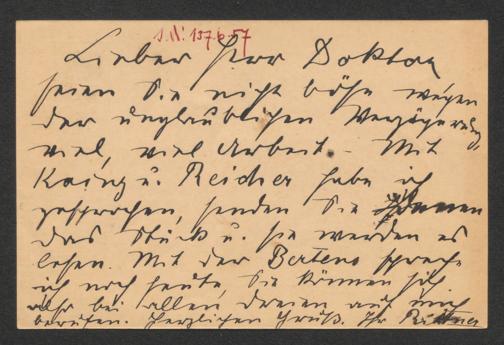 I.N. 137.657
Lieber Herr Doktor
seien Sie nicht böse wegen
der unglaublichen Verzögerung,
viel, viel Arbeit. - Mit
Kainz u. Reicher habe ich
gesprochen, senden Sie ihnen
das Stück u. sie werden es
lesen. Mit der Bertens spreche
ich noch heute, Sie können sich
also bei allen dreien auf mich
berufen. Herzlichen Gruß. Ihr Rittner